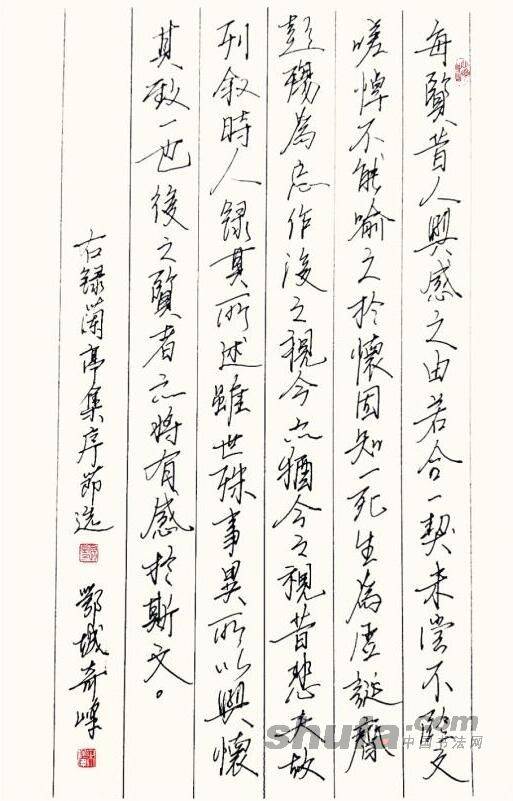 每覽昔人興感之由若合一契未嘗不臨文
嗟悼不能喻之於懷固知一死生為虛誕齊
彭殤為妄作後之視今亦猶今之視昔悲夫故
列叙時人録其所述雖世殊事異所以興懷
其致一也後之覽者亦將有感於斯文。
右録蘭亭集序節选 鄂城奇峰
shufa.com
中国书法网